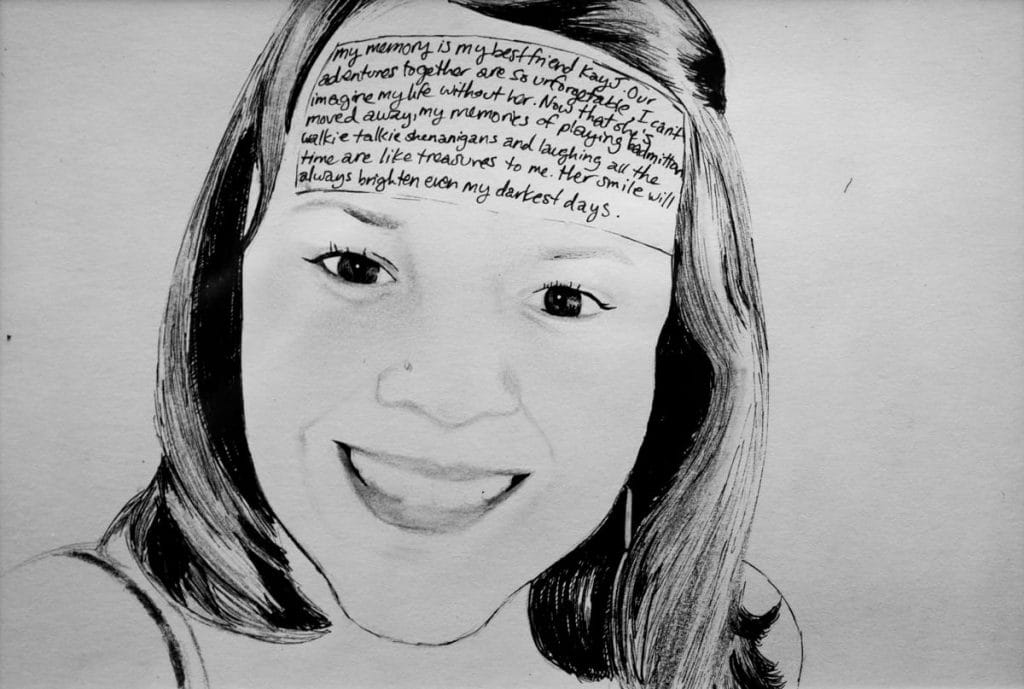 my memory is my bestfriend Kay J. Our
adventures together are so unforgetable, I can't
imagine my life without her. Now that she's
moved away, my memories of playing badmitton
walkie talkie shenanigans and laughing all the
time are like treasures to me. Her smile will
always brighten even my darkest days.